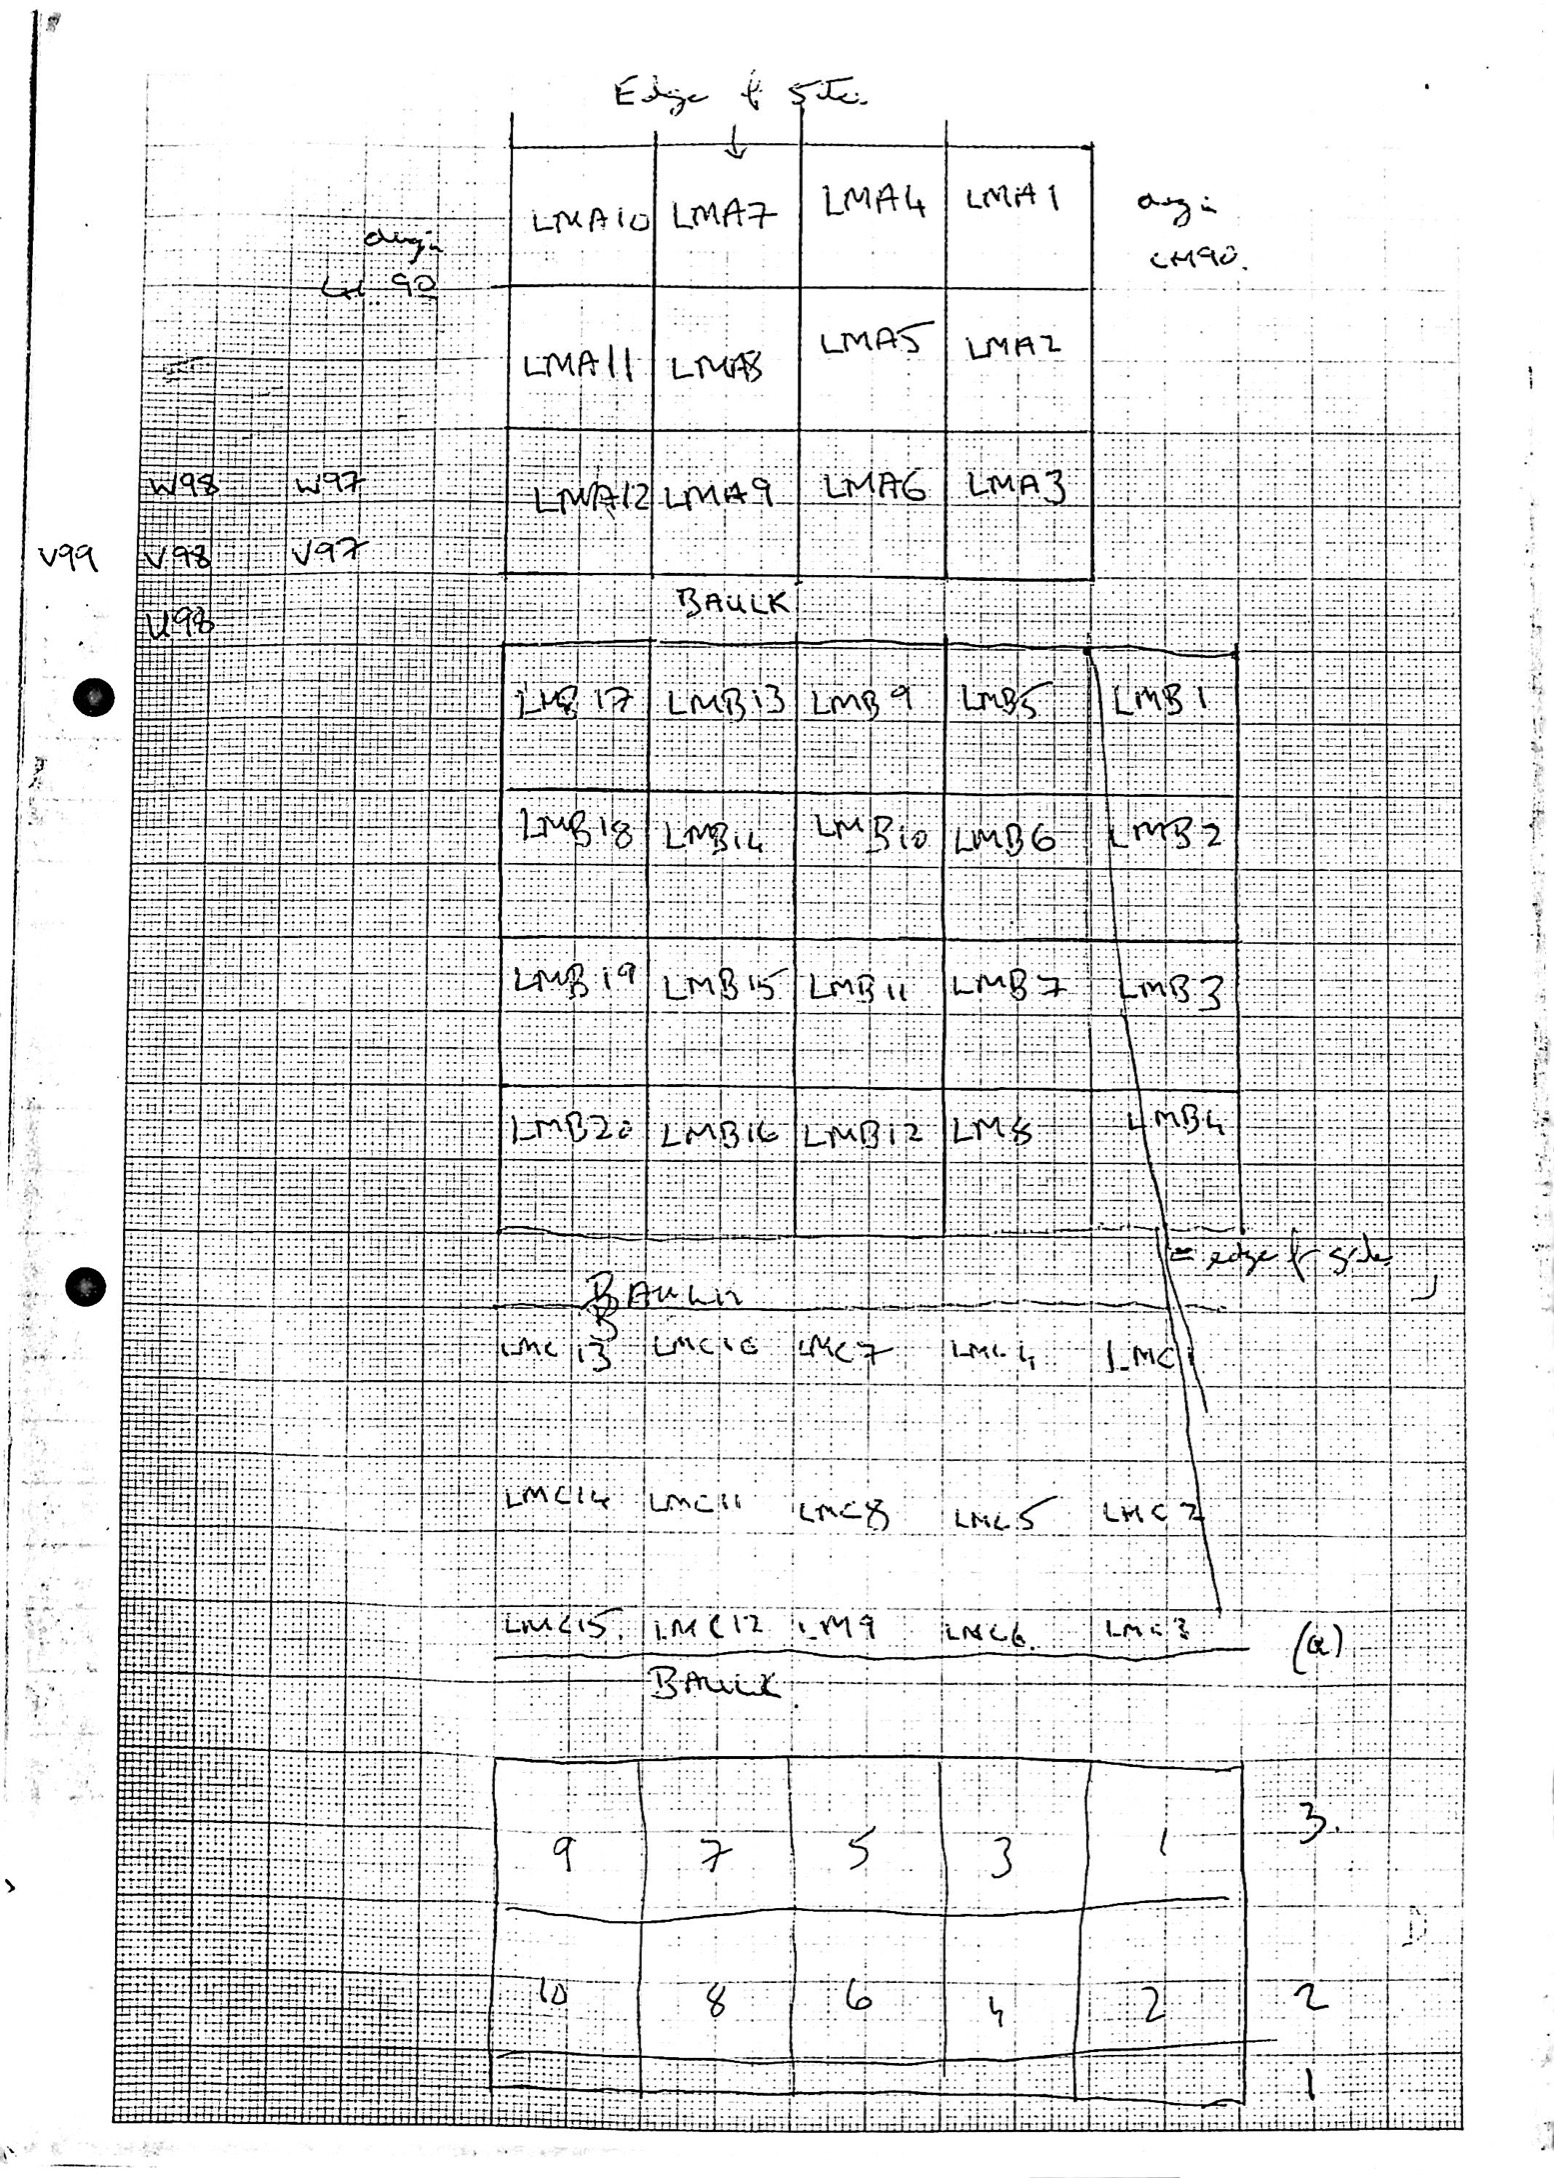 Edge of Site
LMA10 LMA7 LMA4 LMA1
origin
LM90.
origin
LM 90
LMA11 LMA8 LMA5 LMA2
W98 W97
LMA12 LMA9 LMA6 LMA3
V99 V98 V97
BAULK
U98
LMB17 LMB13 LMB9 LMB5 LMB1
LMB18 LMB14 LMB10 LMB6 LMB2
LMB19 LMB15 LMB11 LMB7 LMB3
LMB20 LMB16 LMB12 LM8 LMB4
= edge of site
BAULK
LMC13 LMC10 LMC7 LMC4 LMC1
LMC14 LMC11 LMC8 LMC5 LMC2
LMC15. LMC12 LM9 LMC6. LMC3
(a)
BAULK.
9 7 5 3 1 3.
D
10 8 6 4 2 2
1